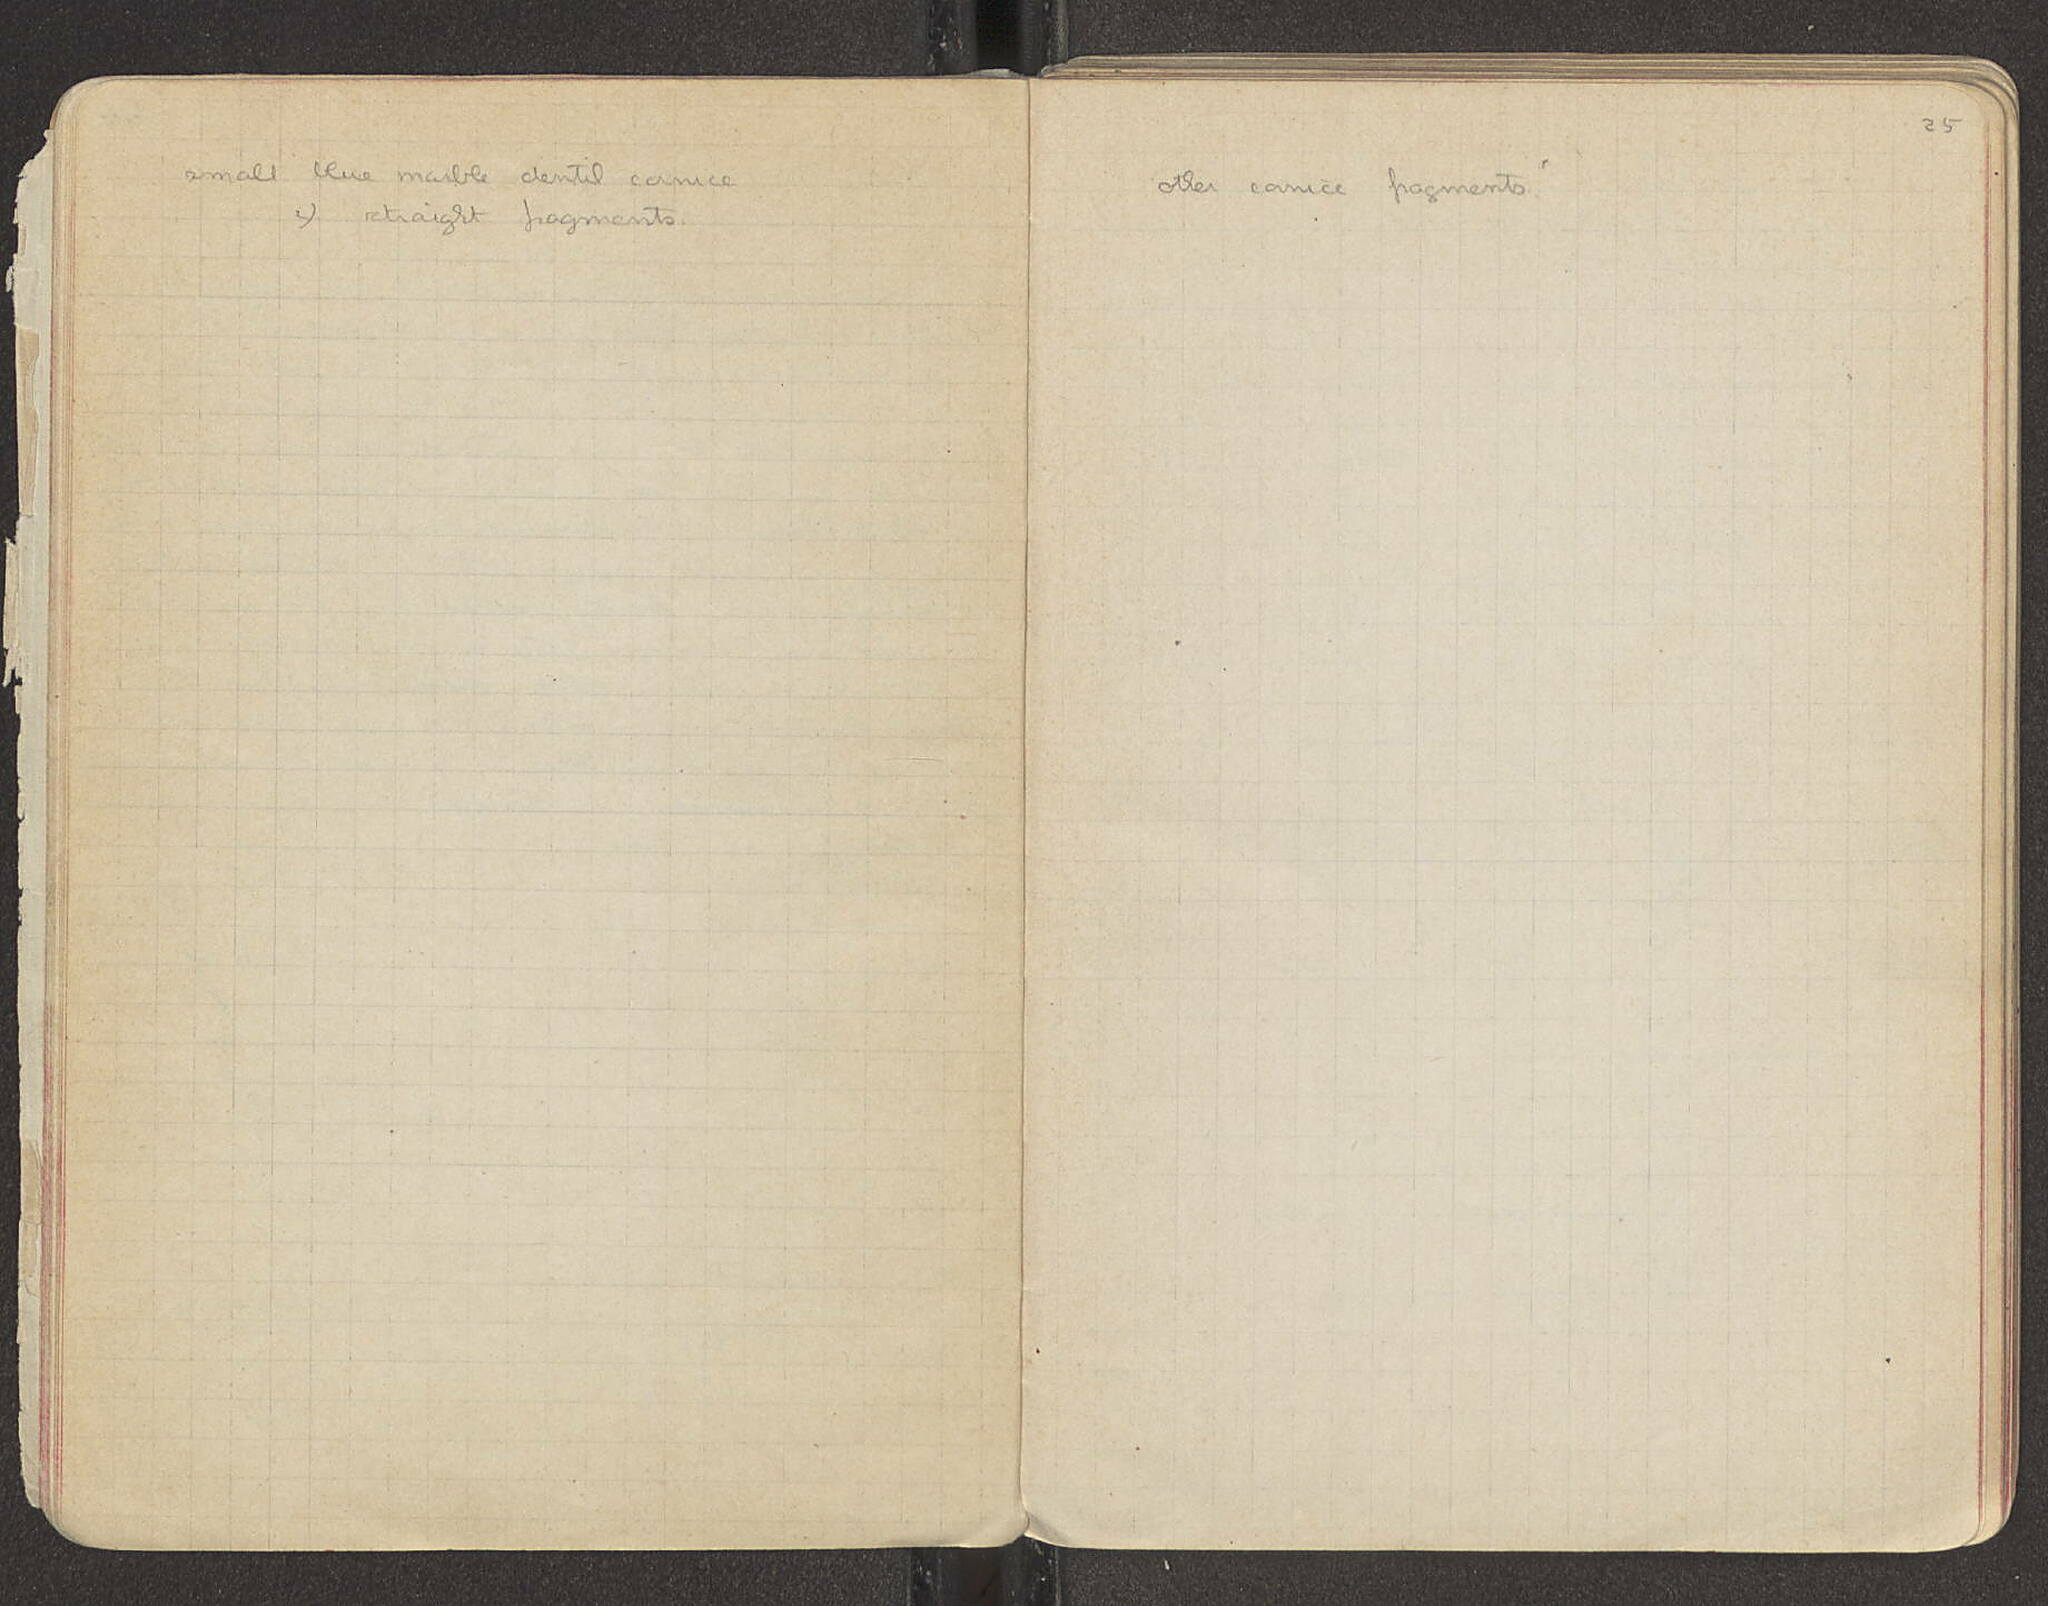 small blue marble dentil cornice
2) straight fragments.
25
other cornice fragments